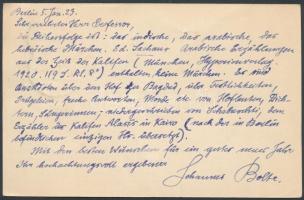 Berlin 5. Jan. 23.
Sehr geehrter Herr Professor,
die Reihenfolge ist: das indische, das arabische, das
hebräische Märchen. Ed. Sachaus Arabische Erzählungen
aus der Zeit der Kalifen (München, Hyperionverlag
1920. 119 S. Kl. 8°) enthalten keine Märchen. Es sind
Anekdoten über den Hof der Bagdad, über Fröhlichkeiten,
freche Antworten, Morde etc. von Hofleuten, Dich-
tern, niedergeschrieben von Schabuschti, dem
Erzähler des Kalifen Alasis in Kairo (nach der in Berlin
befindlichen einzigen Hs. übersetzt).
Mit den besten Wünschen für ein gutes neues Jahr
Ihr hochachtungsvoll ergebener
Johannes Bolte.